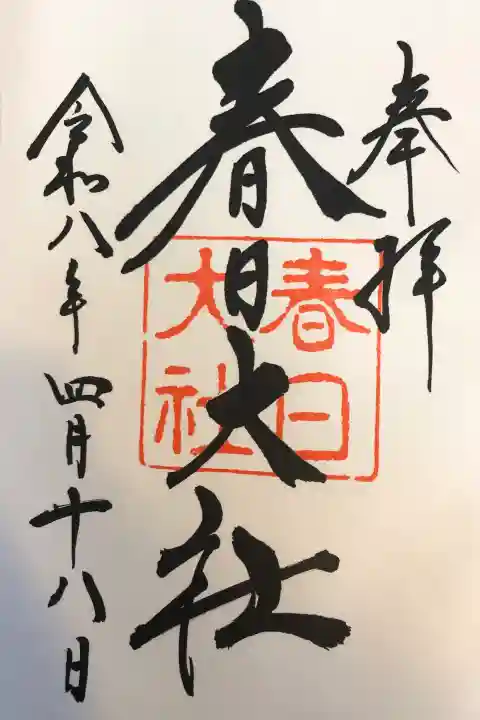 奉拝
春日大社
春日大社
令和八年四月十八日